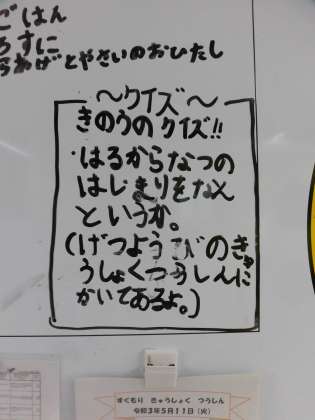 ごはん
ろすに
らあげとやさいのおひたし
～クイズ～
きのうのクイズ!!
・はるからなつの
はじまりをなん
というか。
(げつようびのきゅ
うしょくつうしんに
かいてあるよ。)
すくもり きゅうしょく つうしん
令和3年5月11日(火)